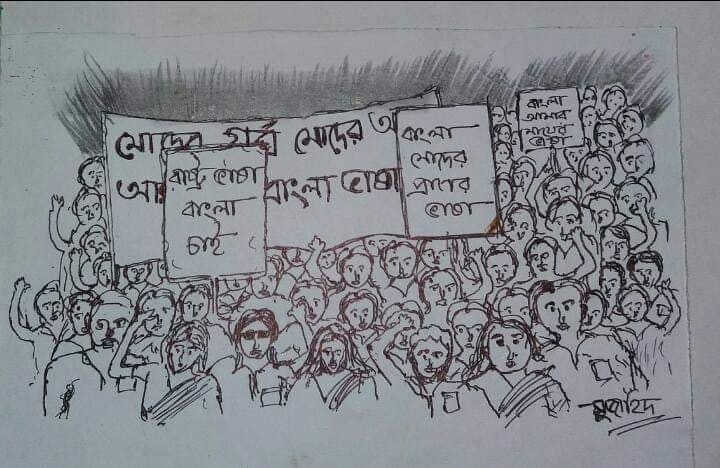 মোদের গর্ব মোদের আ
আ বাংলা ভাষা
রাষ্ট্র ভাষা
বাংলা
চাই
বাংলা
মোদের
প্রাণের
ভাষা
বাংলা
আমার
মায়ের
ভাষা
মুজাহিদ